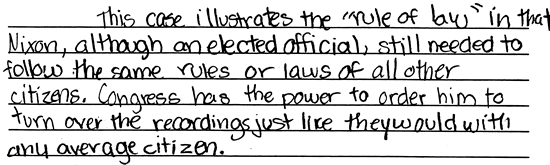 This case illustrates the "rule of law" in that
Nixon, although an elected official, still needed to
follow the same rules or laws of all other
citizens. Congress has the power to order him to
turn over the recordings just like they would with
any average citizen.